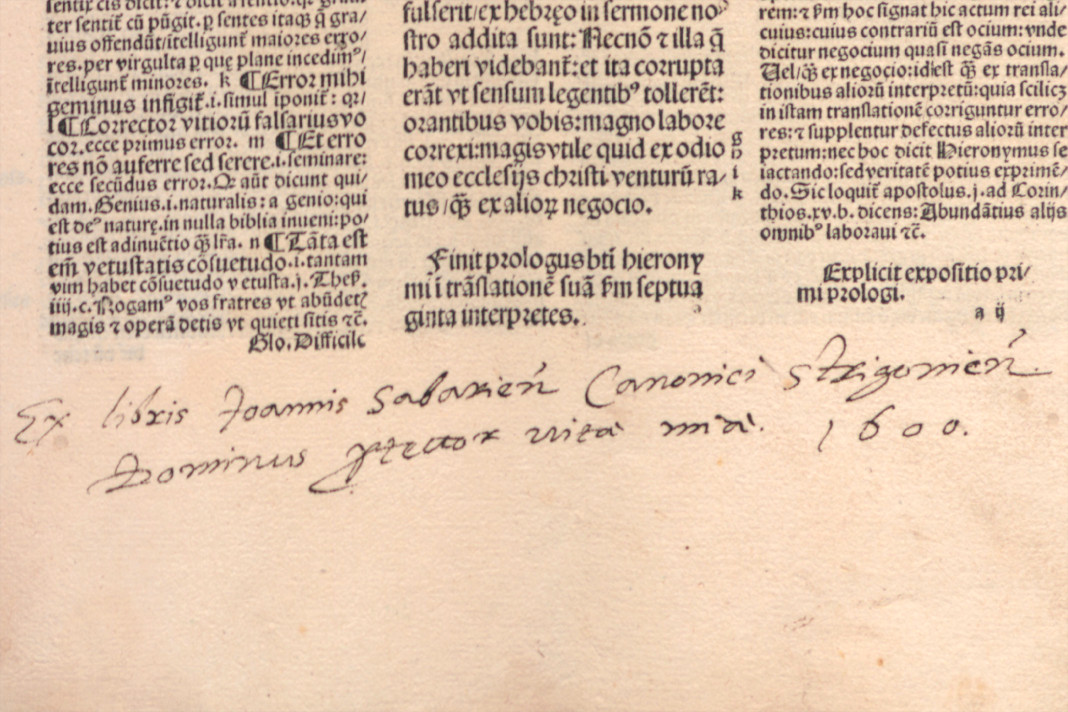 ter sentit᷑ cū pūgit. ꝑ sentes itaqꝫ q̄ gra/
uius offendūt/itelligunt᷑ maiores erro/
res.per virgulta ꝑ que plane incedimꝰ/
ītelligunt᷑ minores. k ¶Error mihi
geminus infigit᷑.i.simul iponit᷑: qr/
l ¶Corrector vitiorū falsarius vo
cor.ecce primus error. m ¶Et erro
res nō auferre sed serere.i.seminare:
ecce secūdus error. Qr aūt dicunt qui/
dam. Genius.i.naturalis: a genio: qui
est deꝰ nature.in nulla biblia inueni: po/
tius est adinuētio qꝫ lr̄a. n ¶Tāta est
em̄ vetustatis cōsuetudo.i.tantam
vim habet cōsuetudo vetusta.j. Thes̄.
iiij.c. Rogamꝰ vos fratres vt abūdetꝭ
magis ⁊ operā detis vt quieti sitis ⁊c̄.
Glo. Difficile
fulserit/ex hebręo in sermone no/
stro addita sunt: Necnō ⁊ illa q̄
haberi videbant᷑: et ita corrupta
erāt vt sensum legentibꝰ tollerēt:
orantibus vobis: magno labore
correxi: magis vtile quid ex odio
meo ecclesijs christi venturū ra/
tus/qꝫ ex alioꝝ negocio.
Finit prologus bti hierony
mi ī trāslationē suā sm̄ septua
ginta interpretes.
g
h
i
k
rem: ⁊ sm̄ hoc signat hic actum rei ali/
cuius: cuius contrariū est ocium: vnde
dicitur negocium quasi negās ocium.
Uel/qꝫ ex negocio: idest qꝫ ex transla/
tionibus aliorū interpretū: quia scilicꝫ
in istam translationē corriguntur erro/
res: ⁊ supplentur defectus aliorū inter
pretum: nec hoc dicit Hieronymus se
iactando: sed veritatē potius exprimē/
do. Sic loquit᷑ apostolus.j.ad Corin/
thios.xv.b. dicens: Abundātius alijs
omnibꝰ laboraui ⁊c̄.
Explicit expositio pri/
mi prologi.
a ij
Ex libris Joannis Sabarien̄ Canonici Strigonien̄
Dominus ꝓtector uitæ meæ. 1600.